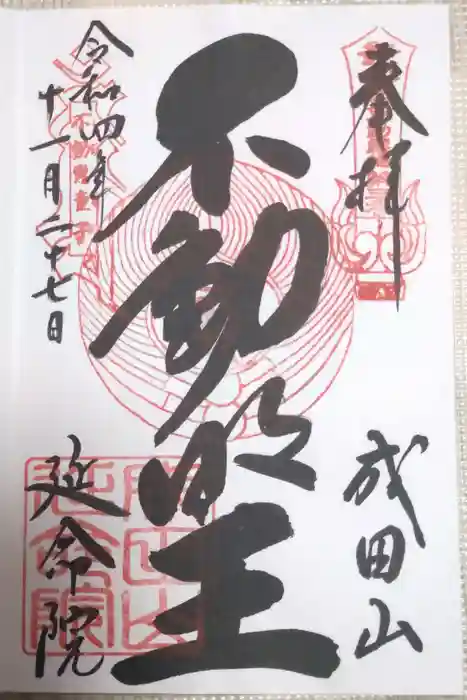 奉拝
成田山
不動明王
令和四年
十一月二十七日
延命院